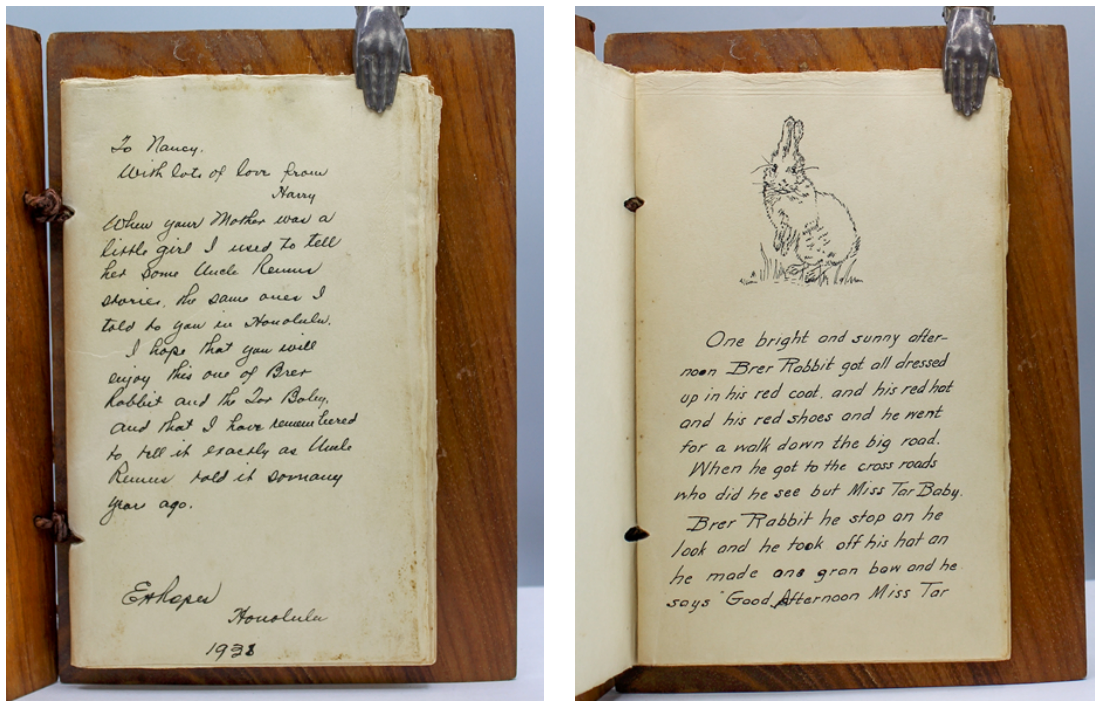 To Nancy.
With lots of love from
Harry
When your Mother was a
little girl I used to tell
her some Uncle Remus
stories, the same ones I
told to you in Honolulu.
I hope that you will
enjoy this one of Brer
Rabbit and the Tar Baby,
and that I have remembered
to tell it exactly as Uncle
Remus told it somany
years ago.
Honolulu
1938
One bright and sunny after-
noon Brer Rabbit got all dressed
up in his red coat, and his red hat
and his red shoes and he went
for a walk down the big road.
When he got to the cross roads
who did he see but Miss Tar Baby.
Brer Rabbit he stop an he
look and he took off his hat an
he made one gran bow and he
says "Good Afternoon Miss Tar